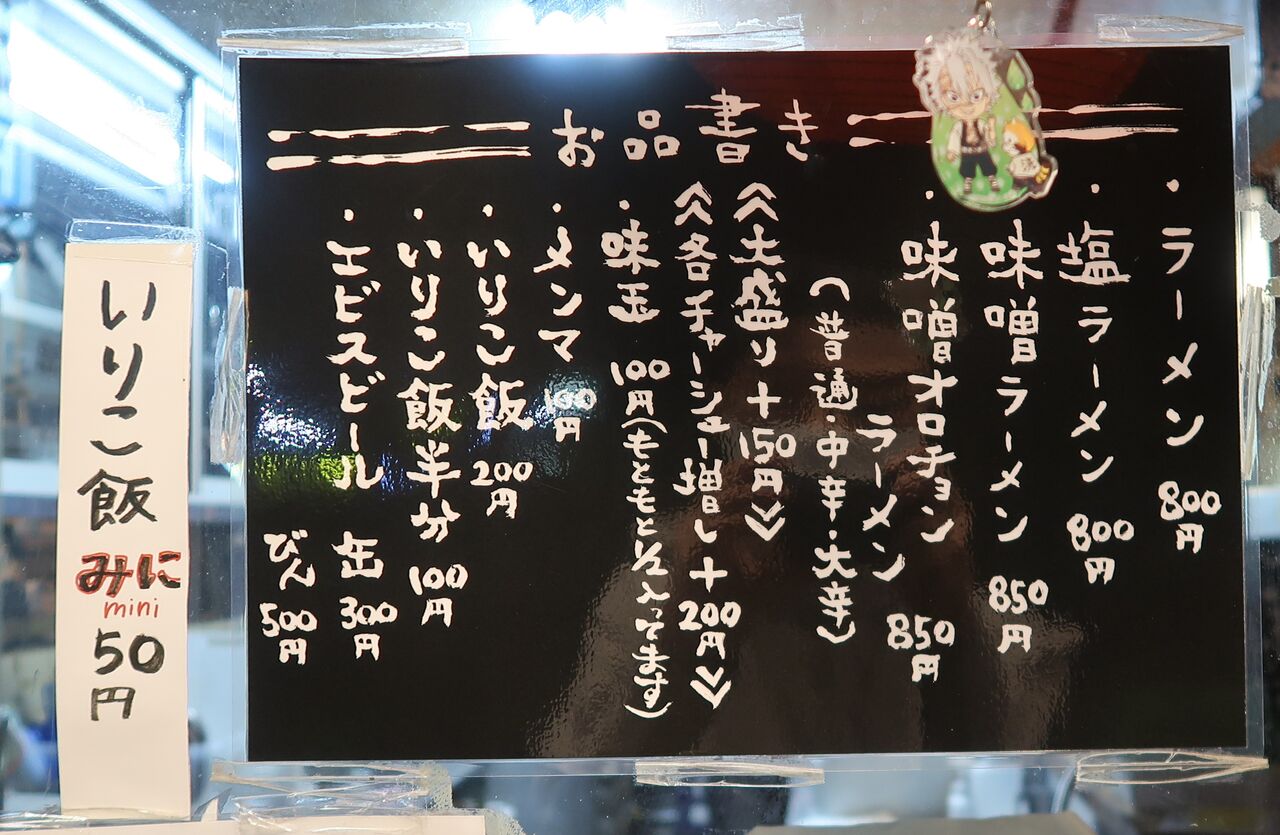 お品書き
・ラーメン 800円
・塩ラーメン 800円
・味噌ラーメン 850円
・味噌オロチョン
ラーメン 850円
(普通・中辛・大辛)
《大盛り+150円》
《各チャーシュー増し+200円》
・味玉 100円(もともと1/2入ってます)
・メンマ 100円
・いりこ飯 200円
・いりこ飯半分 100円
・エビスビール 缶 300円
びん 500円
いりこ飯 みに mini 50円